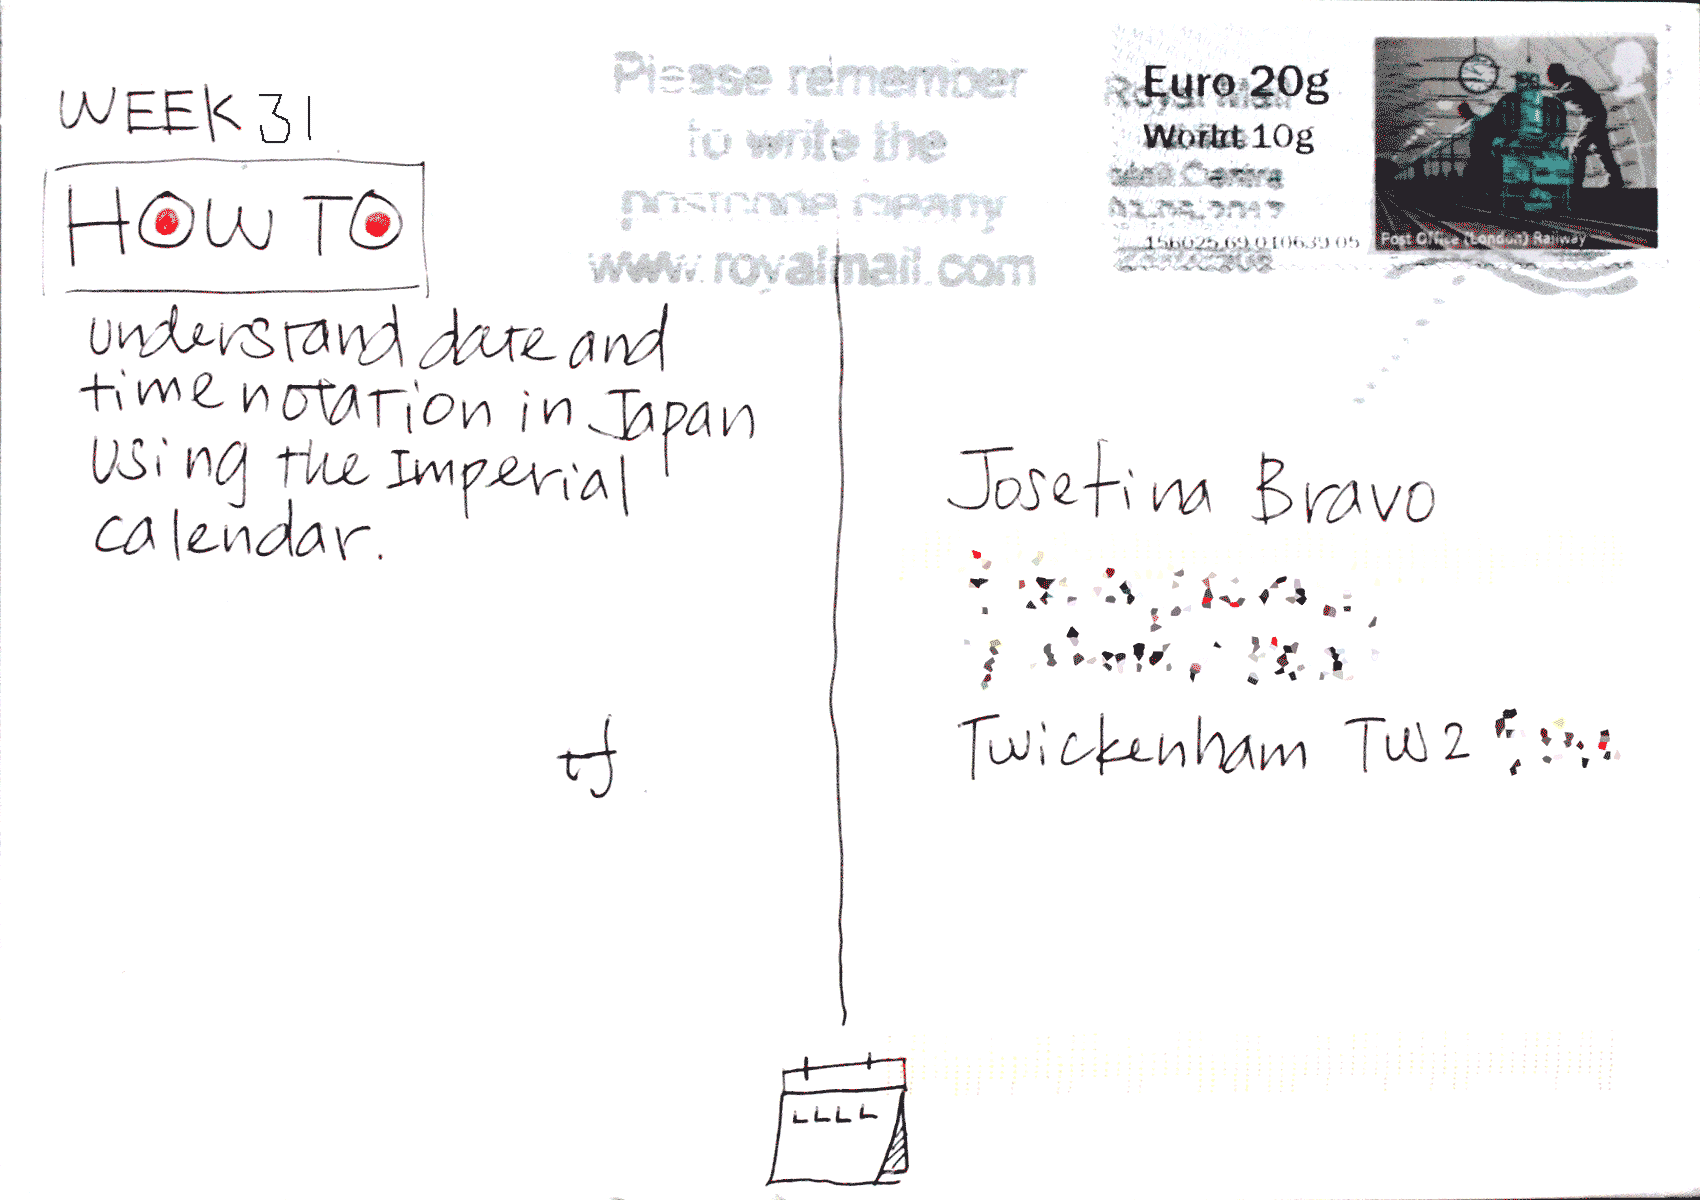 WEEK 31
HOW TO
understand date and
time notation in Japan
using the Imperial
calendar.
tf
Please remember
to write the
postcode clearly
www.royalmail.com
Euro 20g
World 10g
Royal Mail
Mail Centre
156025 69 010639 05
Post Office (London) Railway
Josefina Bravo
Twickenham TW2